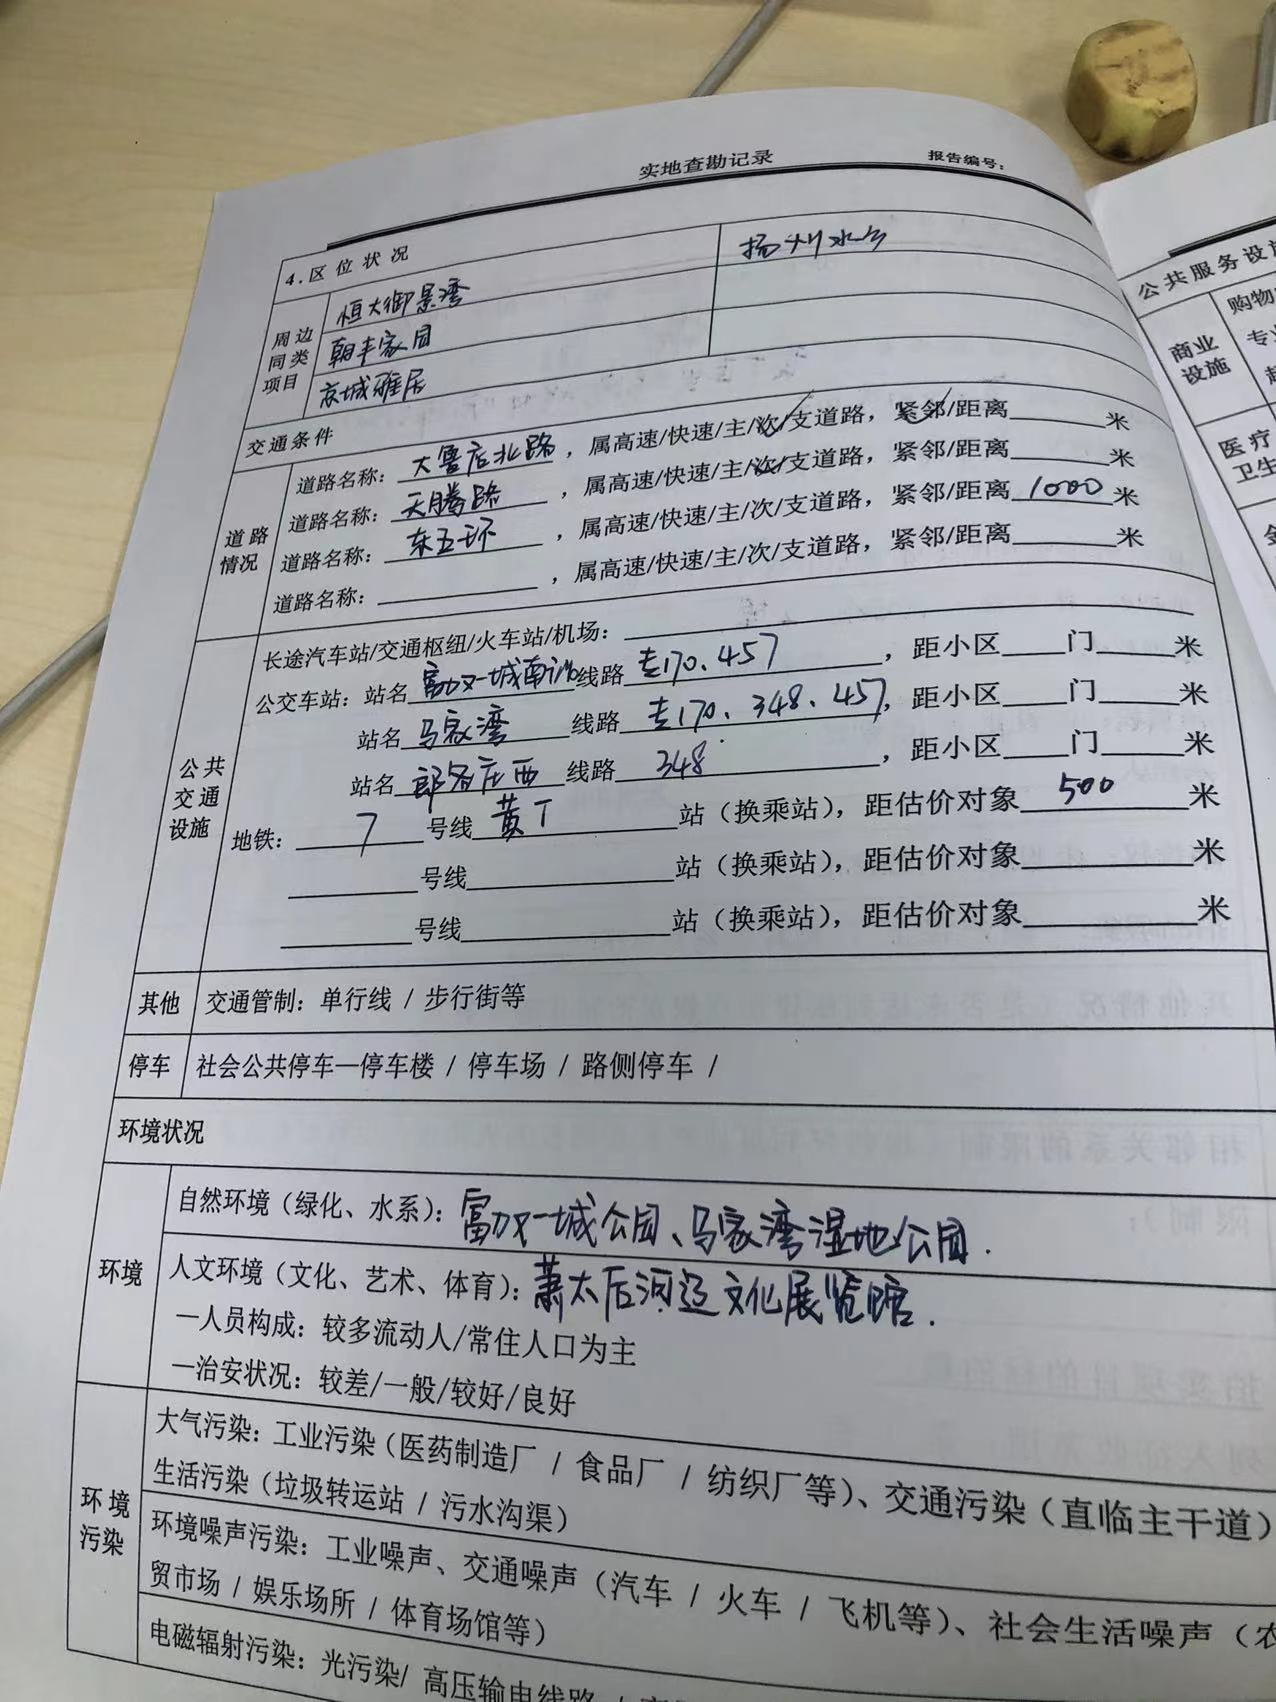 实地查勘记录 报告编号：
4.区位状况
周边同类项目 恒大御景湾 扬州水乡
朝丰家园
京城雅居
交通条件
道路情况 道路名称：大鲁店北路，属高速/快速/主/次/支道路，紧邻/距离______米
道路名称：天腾路，属高速/快速/主/次/支道路，紧邻/距离______米
道路名称：东五环，属高速/快速/主/次/支道路，紧邻/距离1000米
道路名称：______，属高速/快速/主/次/支道路，紧邻/距离______米
公共交通设施 长途汽车站/交通枢纽/火车站/机场：______
公交车站：站名富力又一城南站线路专170、457，距小区____门____米
站名马家湾线路专170、348、457，距小区____门____米
站名郎各庄西线路348，距小区____门____米
地铁：7号线黄厂站（换乘站），距估价对象500米
______号线______站（换乘站），距估价对象______米
______号线______站（换乘站），距估价对象______米
其他 交通管制：单行线 / 步行街等
停车 社会公共停车—停车楼 / 停车场 / 路侧停车 /
环境状况
环境 自然环境（绿化、水系）：富力又一城公园、马家湾湿地公园.
人文环境（文化、艺术、体育）：萧太后河边文化展览馆.
—人员构成：较多流动人/常住人口为主
—治安状况：较差/一般/较好/良好
环境污染 大气污染：工业污染（医药制造厂 / 食品厂 / 纺织厂等）、交通污染（直临主干道）
生活污染（垃圾转运站 / 污水沟渠）
环境噪声污染：工业噪声、交通噪声（汽车 / 火车 / 飞机等）、社会生活噪声（农
贸市场 / 娱乐场所 / 体育场馆等）
电磁辐射污染：光污染/ 高压输电线路 /
公共服务设施
商业设施 购物
专
医疗卫生